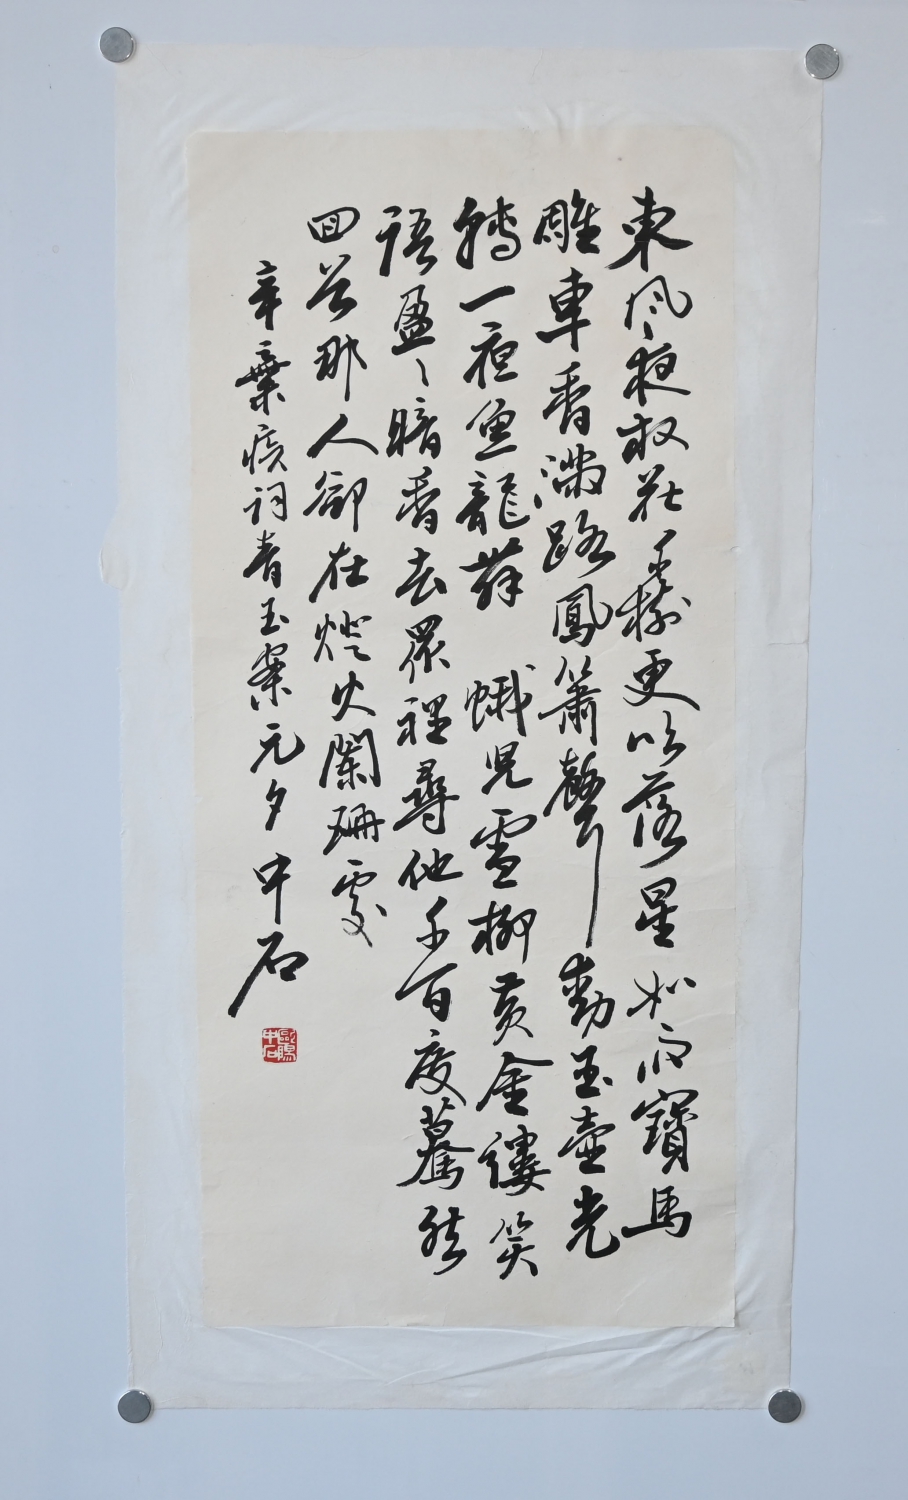 東風夜放花千樹更吹落星如雨寶馬
雕車香滿路鳳簫聲動玉壺光
轉一夜魚龍舞 蛾兒雪柳黃金縷笑
語盈々暗香去眾裡尋他千百度驀然
回首那人卻在燈火闌珊處
辛棄疾詞青玉案元夕中石
歐陽中石